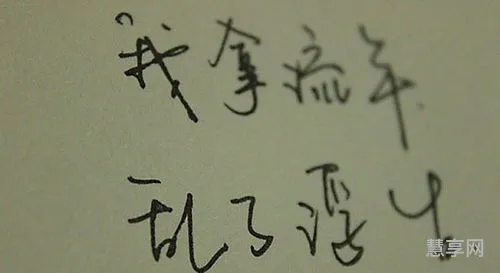 “我拿流年
乱了浮生
慧享网